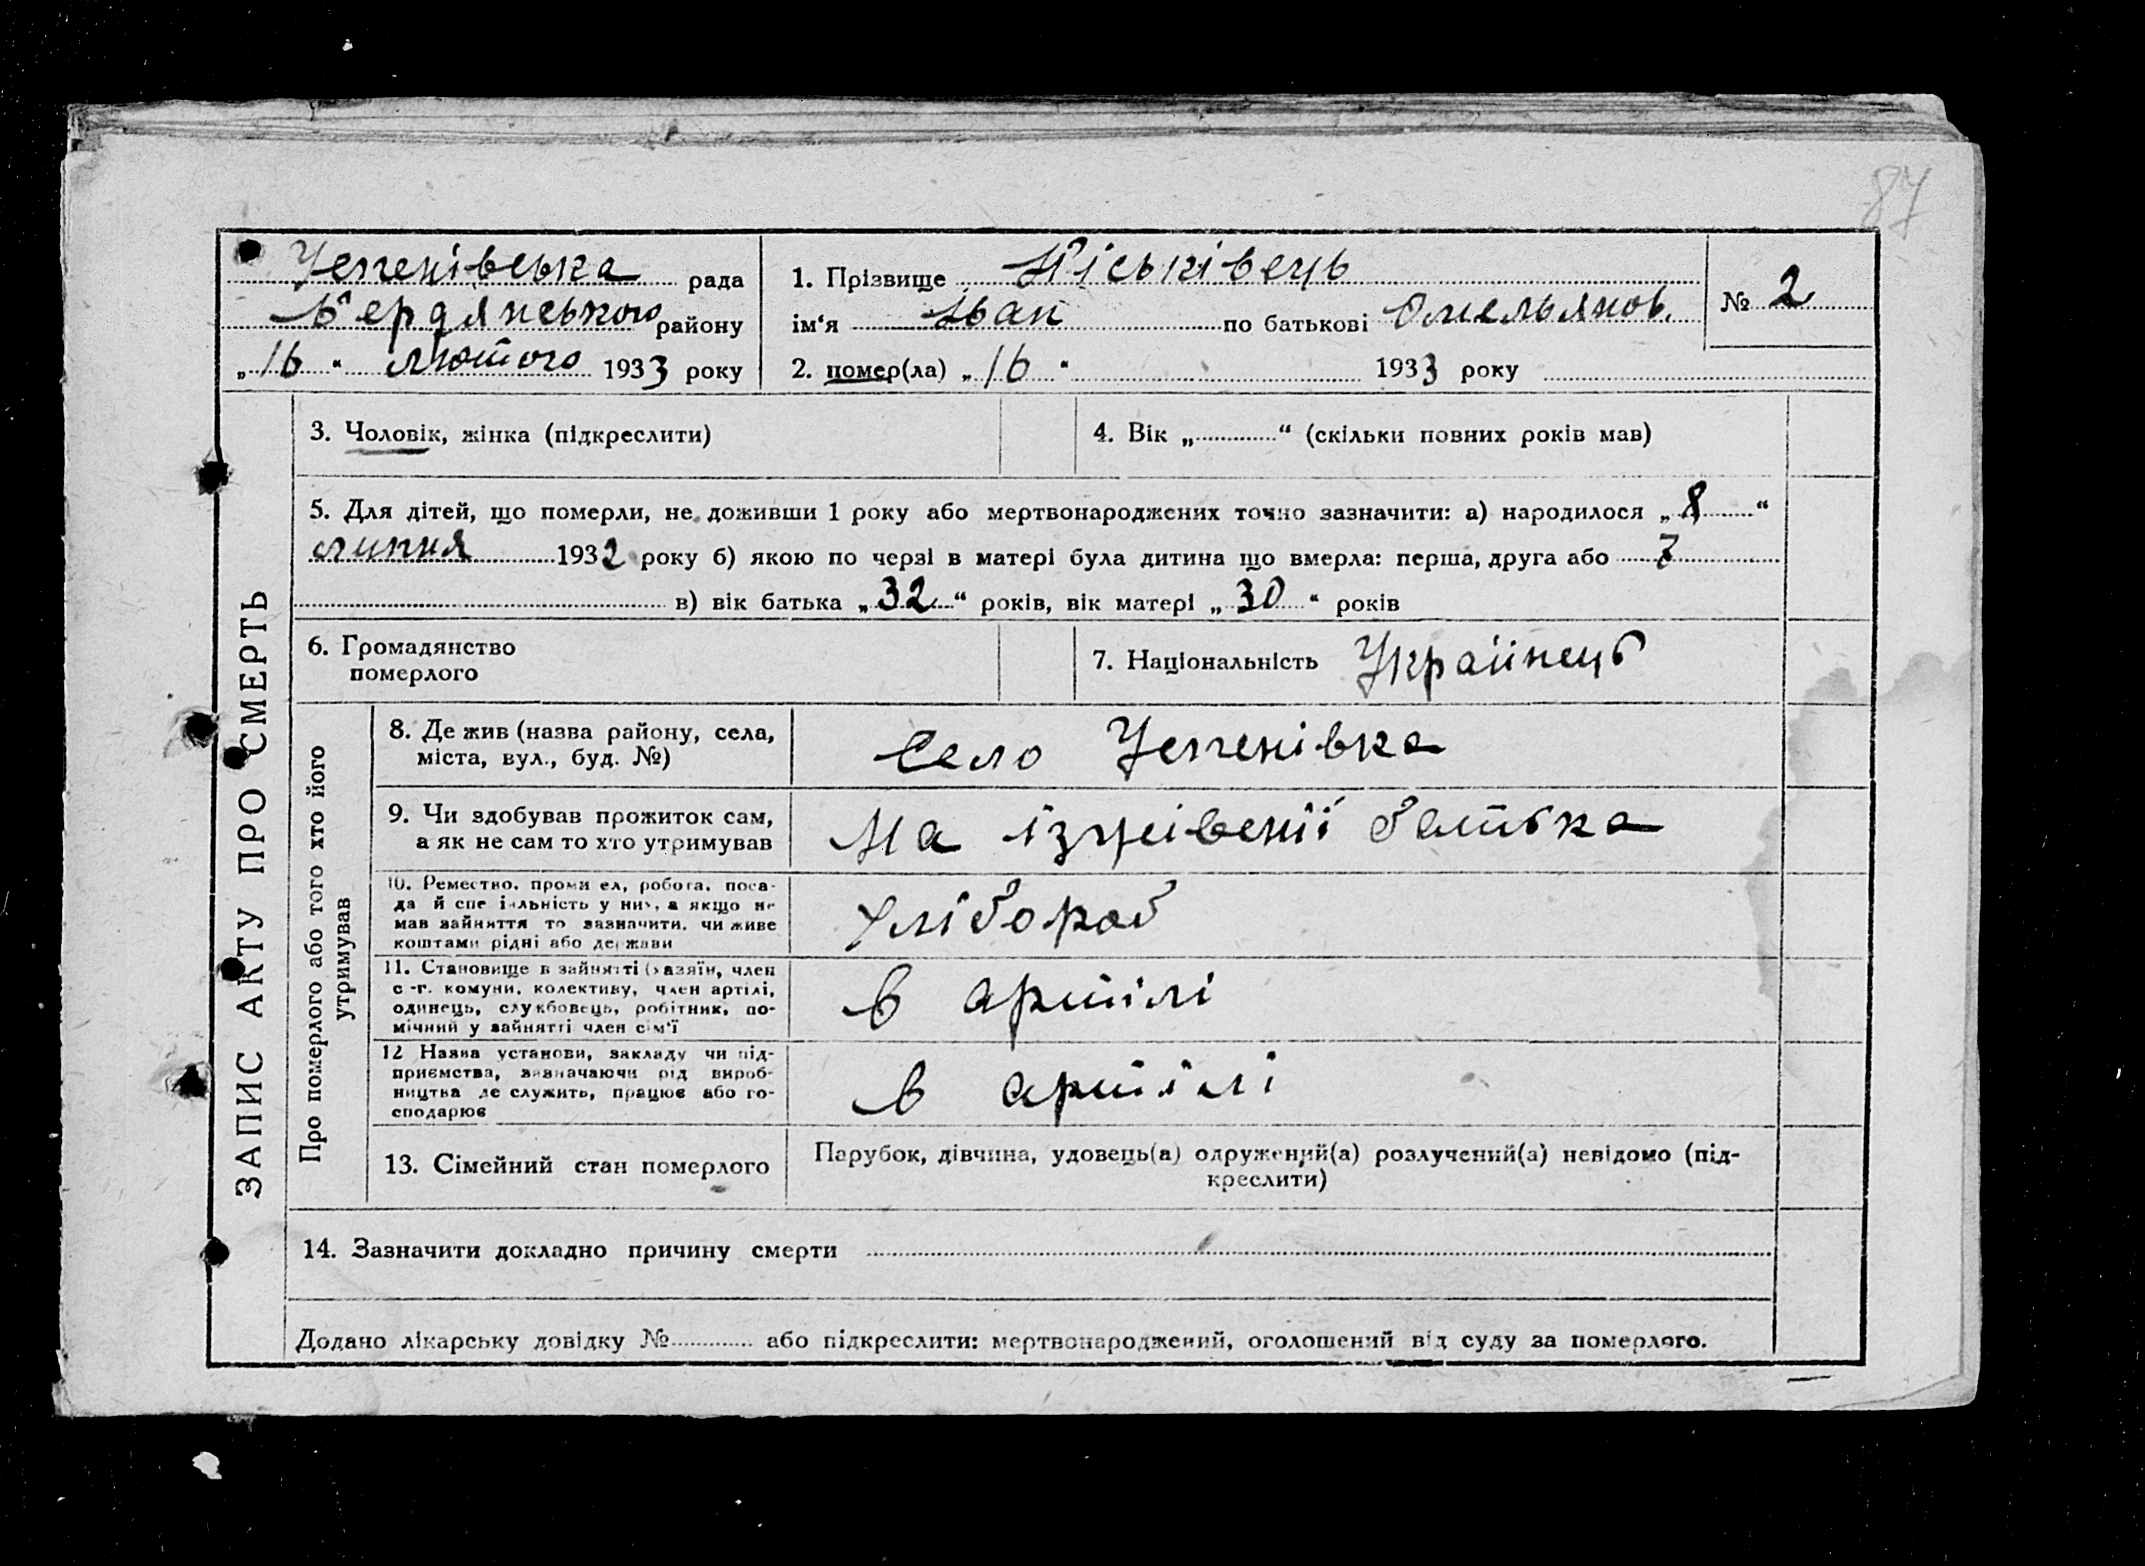 87
Успенівська рада
Бердянського району
„16“ лютого 1933 року
1. Прізвище Ніськівець
ім‘я Іван по батькові Омельянов.
№ 2
2. помер(ла) „16“ 1933 року
ЗАПИС АКТУ ПРО СМЕРТЬ
3. Чоловік, жінка (підкреслити)
4. Вік „ “ (скільки повних років мав)
5. Для дітей, що померли, не доживши 1 року або мертвонароджених точно зазначити: а) народилося „8“
липня 1932 року б) якою по черзі в матері була дитина що вмерла: перша, друга або 7
в) вік батька „32“ років, вік матері „30“ років
6. Громадянство
померлого
7. Національність Українець
Про померлого або того хто його
утримував
8. Де жив (назва району, села,
міста, вул., буд. №)
Село Успенівка
9. Чи здобував прожиток сам,
а як не сам то хто утримував
На батька
10. Ремество, промисел, робота, поса-
да й спеціяльність у них, а якщо не
мав зайняття то зазначити, чи живе
коштами рідні або держави
Хлібороб
11. Становище в зайнятті (хазяїн, член
с.-г. комуни, колективу, член артілі,
одинець, службовець, робітник, по-
мічний у зайнятті член сім'ї
в артілі
12 Назва установи, закладу чи під-
приємства, зазначаючи рід вироб-
ництва де служить, працює або го-
сподарює
в артілі
13. Сімейний стан померлого
Парубок, дівчина, удовець(а) одружений(а) розлучений(а) невідомо (під-
креслити)
14. Зазначити докладно причину смерти
Додано лікарську довідку № або підкреслити: мертвонароджений, оголошений від суду за померлого.